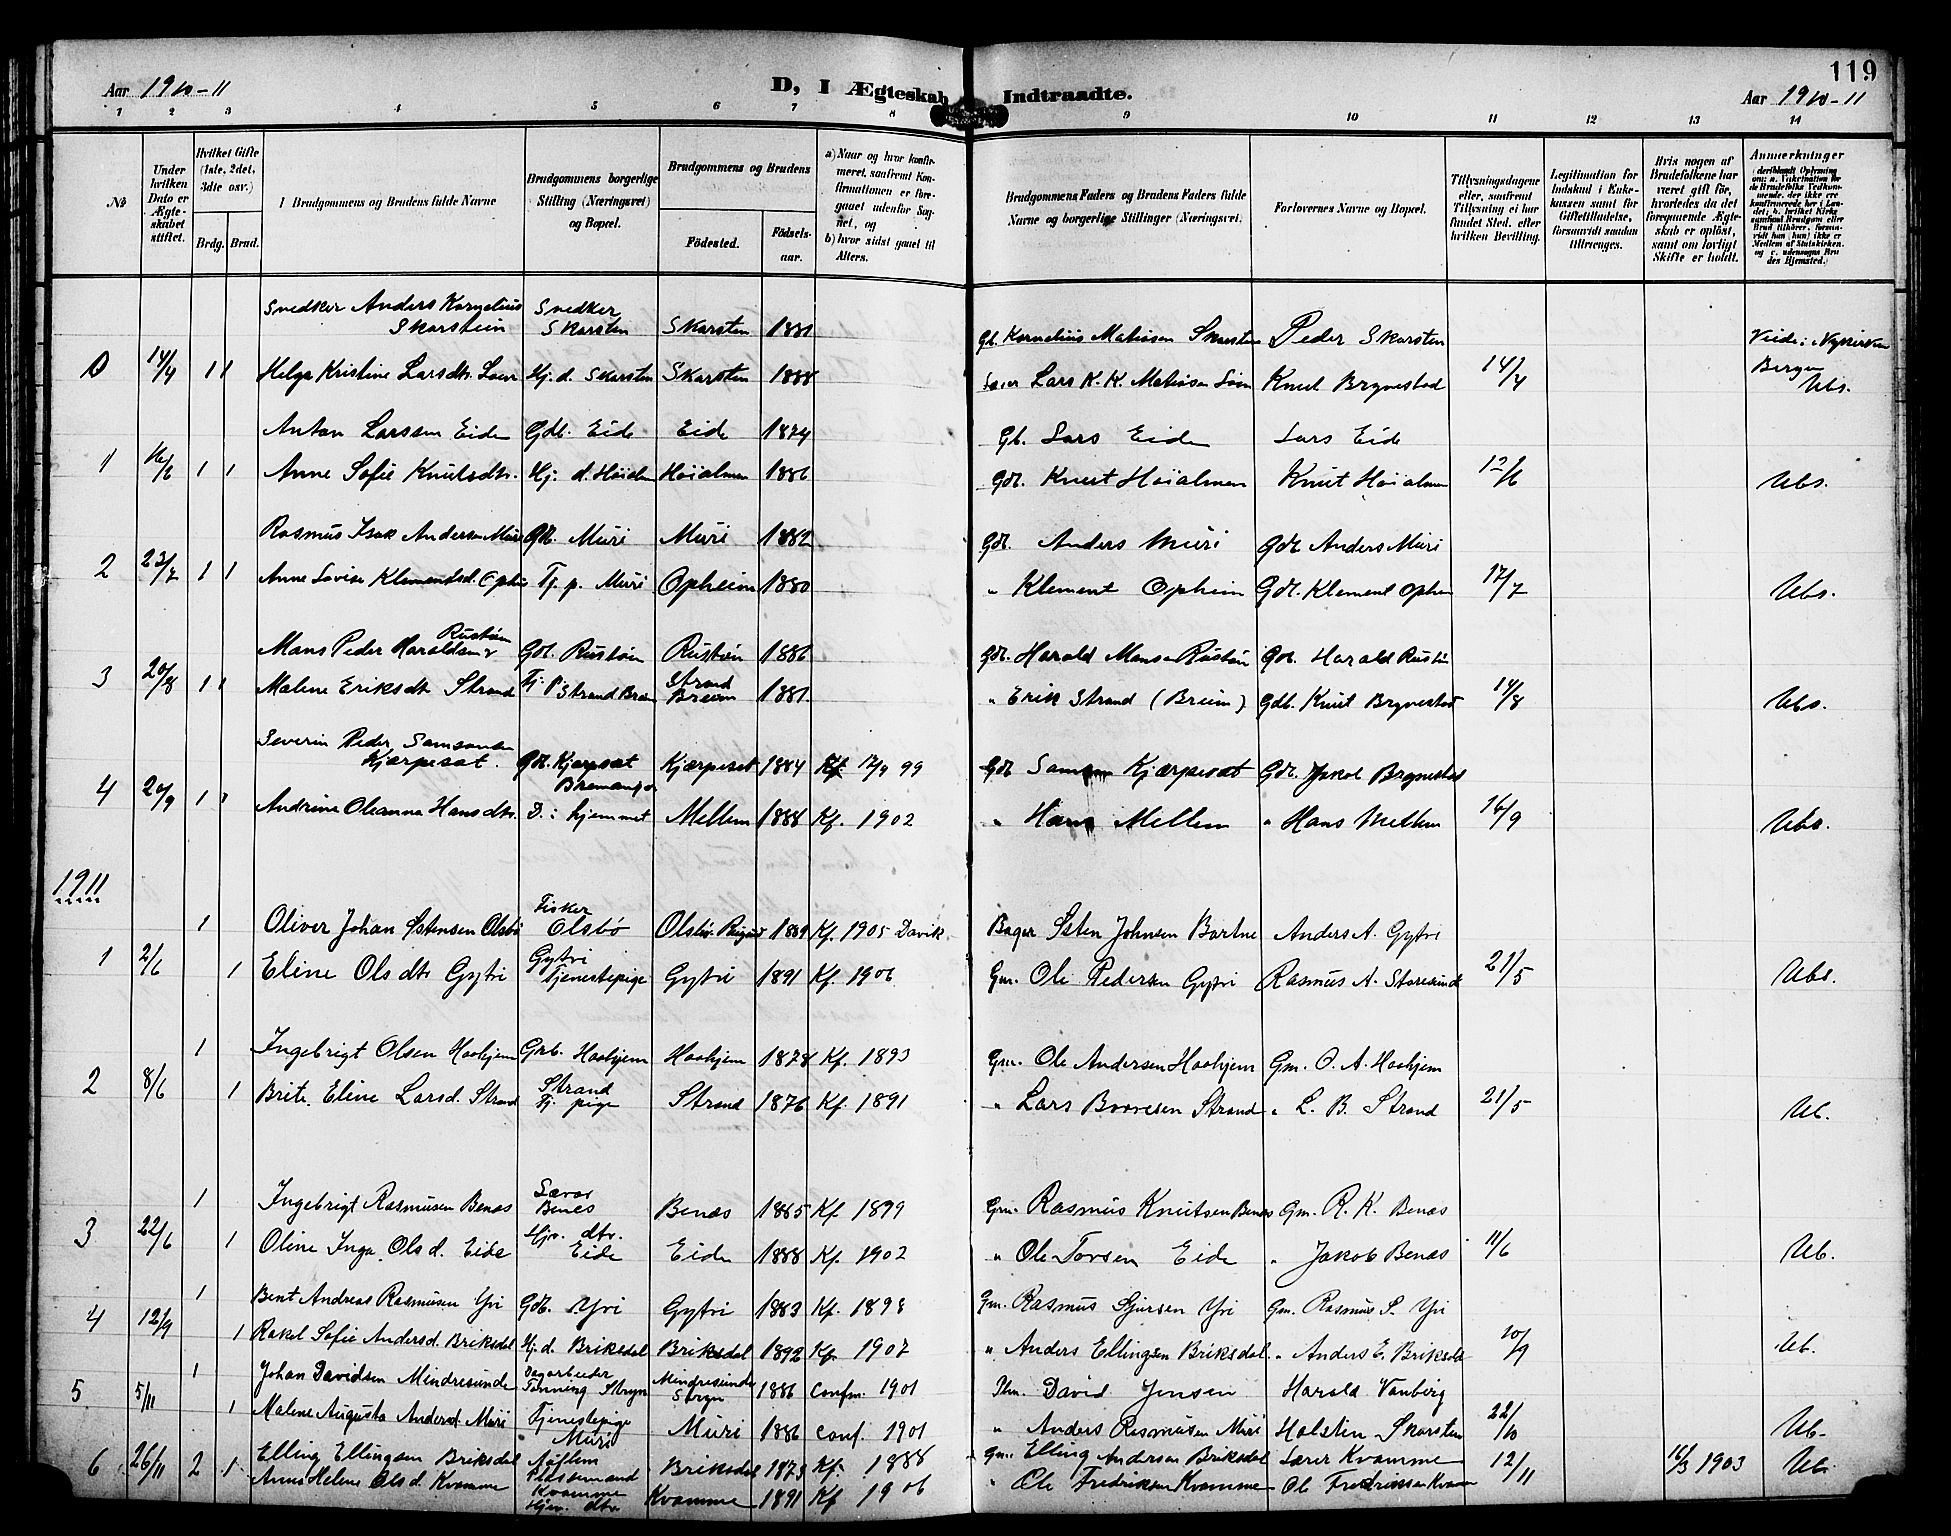 119
Aar 1910-11
D, I Ægteskab Indtraadte.
Aar 1910-11
1 2 3 4 5 6 7 8 9 10 11 12 13 14
No
Under hvilken Dato er Ægteskabet stiftet.
Hvilket Gifte (1ste, 2det, 3die osv.)
Brdg. Brud.
Brudgommens og Brudens fulde Navne
Brudgommens borgerlige Stilling (Næringsvei) og Bopæl.
Brudgommens og Brudens
Fødested.
Fødselsaar.
a) Naar og hvor konfirmeret, samfremt Konfirmationen er foregaaet udenfor Sognet, og
b) hvor sidst gaaet til Alters.
Brudgommens Faders og Brudens Faders fulde Navne og borgerlige Stillinger (Næringsvei).
Forlovernes Navne og Bopæl.
Tillysningsdagene eller, samfremt Tillysning ei har fundet Sted, efter hvilken Bevilling.
Legitimation for Indskud i Enkekassen samt for Giftetilladelse, forsaavidt saadan tiltrænges.
Hvis nogen af Brudefolkene har været gift før, hvorledes da det foregaaende Ægteskab er opløst, samt om lovligt Skifte er holdt.
Anmærkninger
Snedker Anders Kornelius Skarstein Snedker Skarsten Skarsten 1881 Gb. Kornelius Matiasen Skarsten Peder Skarsten
0 14/4 1 1 Helga Kristine Larsdtr. Loen Hj. d. Skarsten Skarsten 1888 Lars K. K. Matiasen Knut Brynestad 14/4 Viede i Nykirken Bergen Ubs.
Anton Larssen Eide Gdb. Eide Eide 1874 Gb. Lars Eide Lars Eide
1 1 1 Anne Sofie Knutsdtr. Hj. d. Høialmen Høialmen 1886 Gdb. Knut Høialmen Knut Høialmen 12/6 Ubs.
Rasmus Isak Andersen Muri Gdb. Muri Muri 1882 Gdb. Anders Muri Gdb. Anders Muri
2 23/7 1 1 Anne Lovise Klementsd. Opheim Tj. p. Muri Opheim 1880 " Klement Opheim Gdb. Klement Opheim 17/7 Ubs.
Mons Peder Haraldsen Rustøen Gdb. Rustøen Rustøen 1886 Gdb. Harald Monsen Rustøen Gdb. Harald Rustøen
3 20/8 1 1 Malene Eriksdtr. Strand Tj. p. Strand Breim Strand Breim 1881 " Erik Strand (Breim) Gdb. Knut Brynestad 14/8 Ubs.
Severin Peder Samsonsen Kjærpeset. Gdb. Kjærpeset Bremanger Kjærpeset 1884 Kf. 17/9 99 Gdb. Samson Kjærpeset Gdb. Jakob Brynestad
4 20/9 1 1 Andrine Oleanna Hansdtr. D. i hjemmet Mellem 1888 Kf. 1902 " Hans Mellem " Hans Mellem 16/9 Ubs.
1911
1 Oliver Johan Stensen Olsbø Fisker Olsbø Olsbø 1889 Kf. 1905 Davik Bager Sten Johnsen Anders A. Gytri
1 2/6 1 Eline Olsdtr. Gytri Gytri Tjenestepige Gytri 1891 Kf. 1906 Gm. Ole Pedersen Gytri Rasmus A. Storesunde 21/5 Ubs.
1 Ingebrigt Olsen Haahjem Grb. Haahjem Haahjem 1878 Kf. 1893 Gm. Ole Andersen Haahjem Gm. O. A. Haahjem
2 8/6 1 Brite Eline Larsd. Strand Strand Tj. pige Strand 1876 Kf. 1891 " Lars Strand " L. B. Strand 21/5 Ub.
1 Ingebrigt Rasmusen Benæs Benes Benæs 1885 Kf. 1899 Gm. Rasmus Knutsen Benæs Gm. R. K. Benæs
3 22/6 1 Oline Inga Olsd. Eide Hjv. dtr. Eide Eide 1888 Kf. 1902 " Ole Torsen Eide " Jakob Benæs 11/6 Ub.
1 Bent Andreas Rasmusen Yri Gdb. Yri Gytri 1883 Kf. 1898 Gm. Rasmus Sjursen Yri Gm. Rasmus S. Yri
4 12/9 1 Rakel Sofie Andersd. Briksdal Hj. d. Briksdal Briksdal 1892 Kf. 1907 " Anders Ellingsen Briksdal " Anders E. Briksdal 10/9 Ub.
1 Johan Davidsen Mindresunde Dagarbeider Tonning Stryn Mindresunde Stryn 1886 Confm. 1901 Plm. David Jensen Harald Vanberg
5 5/11 1 Malene Augusta Andersd. Muri Tjenestepige Muri Muri 1886 Conf. 1901 " Anders Rasmusen Muri Holstin Skarsten 22/10 Ub.
6 26/11 2 1 Elling Ellingsen Briksdal Plassemand Briksdal 1873 Kf. 1888 Gm. Elling Andersen Briksdal Lærer Kvamme 12/11 16/3 1903 Ub.
Anna Helene Olsd. Kvamme Kvamme Hjv. dtr. Kvamme 1891 Kf. 1906 " Ole Fredriksen Kvamme Ole Fredriksen Kvamme